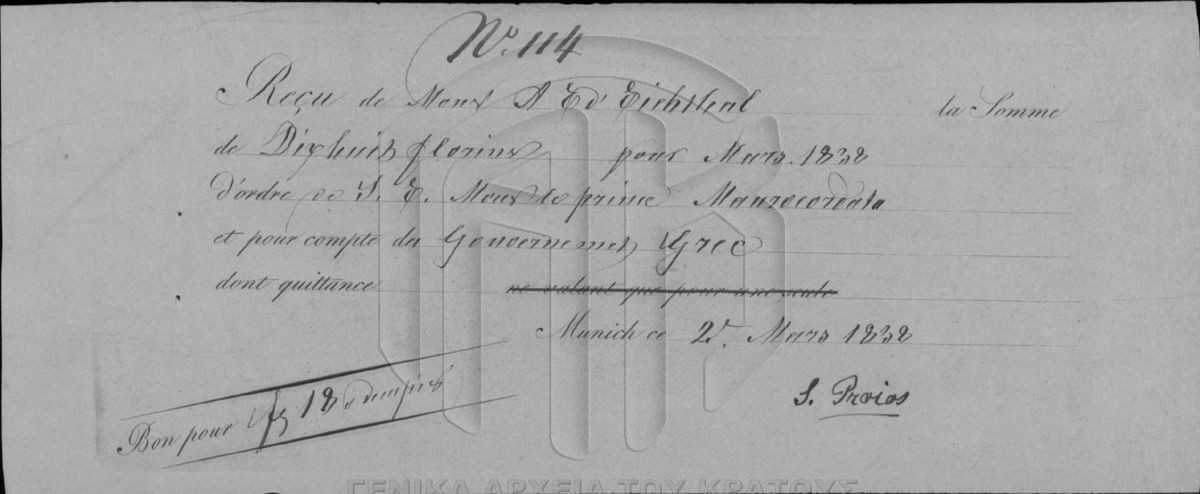 No. 114
Reçu de Monsr A Ed' Eichthal la Somme
de Dixhuit florins pour Mars. 1838
d'ordre de S. E. Monsr le prince Maurocordata
et pour compte du Gouvernement Grec
dont quittance ne valant que pour une seule
Munich ce 2. Mars 1838
S. Proios
Bon pour 18
ΓΕΝΙΚΑ ΑΡΧΕΙΑ ΤΟΥ ΚΡΑΤΟΥΣ